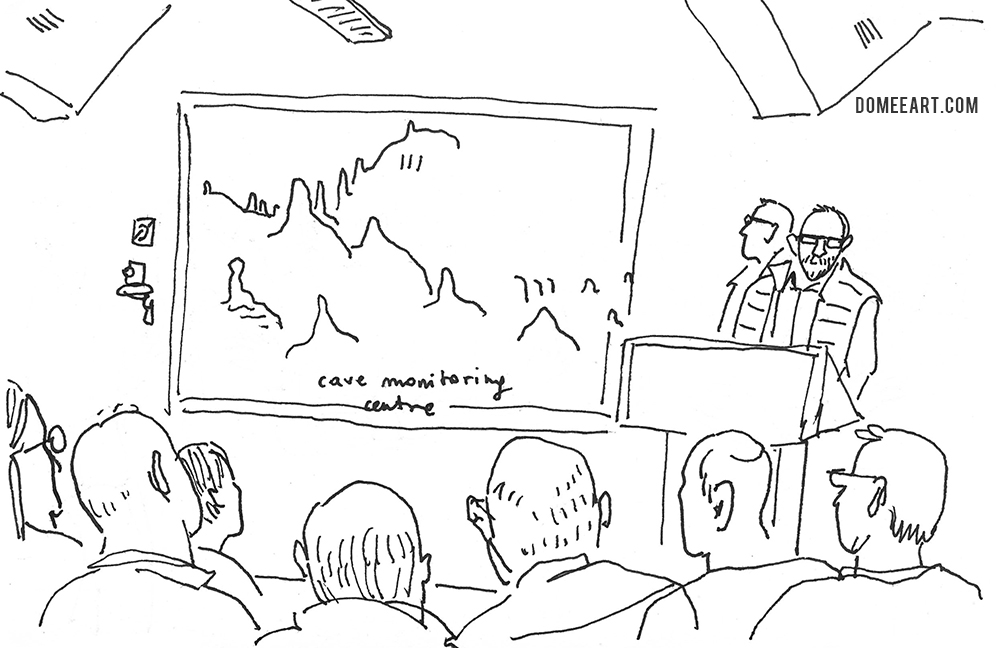 DOMEEART.COM
cave monitoring
centre